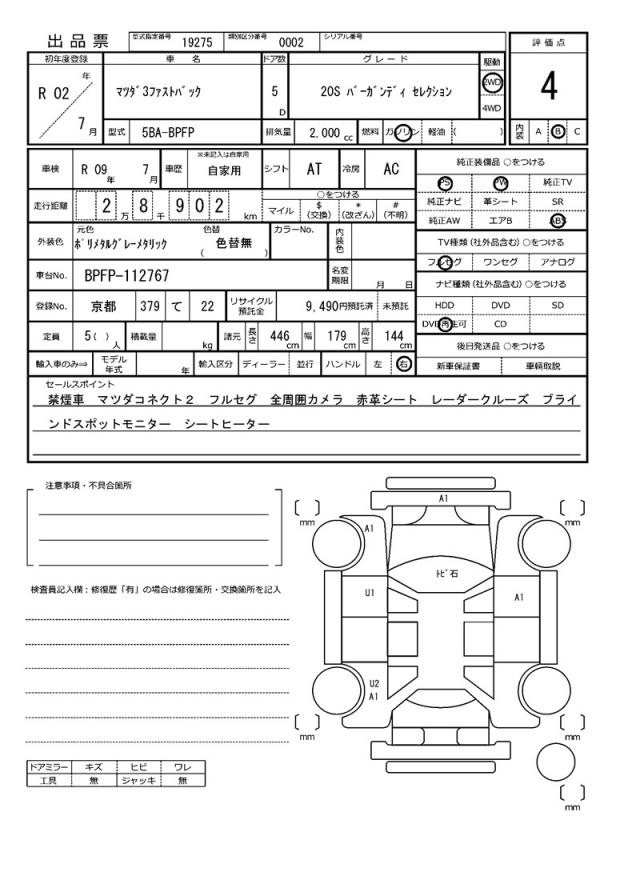 出品票
型式指定番号 19275 類別区分番号 0002 シリアル番号
評価点
4
初年度登録 車名 ドア数 グレード 駆動
R 02 年 7 月
ﾏﾂﾀﾞ3ﾌｧｽﾄﾊﾞｯｸ 5 D 20S ﾊﾞｰｶﾞﾝﾃﾞｨ ｾﾚｸｼｮﾝ 2WD 4WD
型式 5BA-BPFP 排気量 2,000 cc 燃料 ガソリン 軽油 ( )
内装 A B C
車検 R 09 年 7 月 車歴 ※未記入は自家用 自家用 シフト AT 冷房 AC
純正装備品 ○をつける
PS PW 純正TV
純正ナビ 革シート SR
純正AW エアB ABS
走行距離 2 万 8 千 9 0 2 km
○をつける
マイル $ (交換) * (改ざん) # (不明)
外装色 元色 ﾎﾟﾘﾒﾀﾙｸﾞﾚｰﾒﾀﾘｯｸ 色替 ( 色替無 ) カラーNo. 内装色
TV種類 (社外品含む) ○をつける
フルセグ ワンセグ アナログ
車台No. BPFP-112767 名変期限 月 日
ナビ種類 (社外品含む) ○をつける
HDD DVD SD
DVD再生可 CD
登録No. 京都 379 て 22 リサイクル預託金 9,490円預託済 未預託
定員 5 ( ) 人 積載量 kg 諸元 長さ 446 cm 幅 179 cm 高さ 144 cm
後日発送品 ○をつける
新車保証書 車輌取説
輸入車のみ⇒ モデル年式 年 輸入区分 ディーラー 並行 ハンドル 左 右
セールスポイント
禁煙車 マツダコネクト２ フルセグ 全周囲カメラ 赤革シート レーダークルーズ ブライ
ンドスポットモニター シートヒーター
注意事項・不具合箇所
検査員記入欄：修復歴「有」の場合は修復箇所・交換箇所を記入
ドアミラー キズ ヒビ ワレ
工具 無 ジャッキ 無
A1
mm
mm
A1
ﾄﾋﾞ石
U1
A1
U2
A1
mm
mm
mm